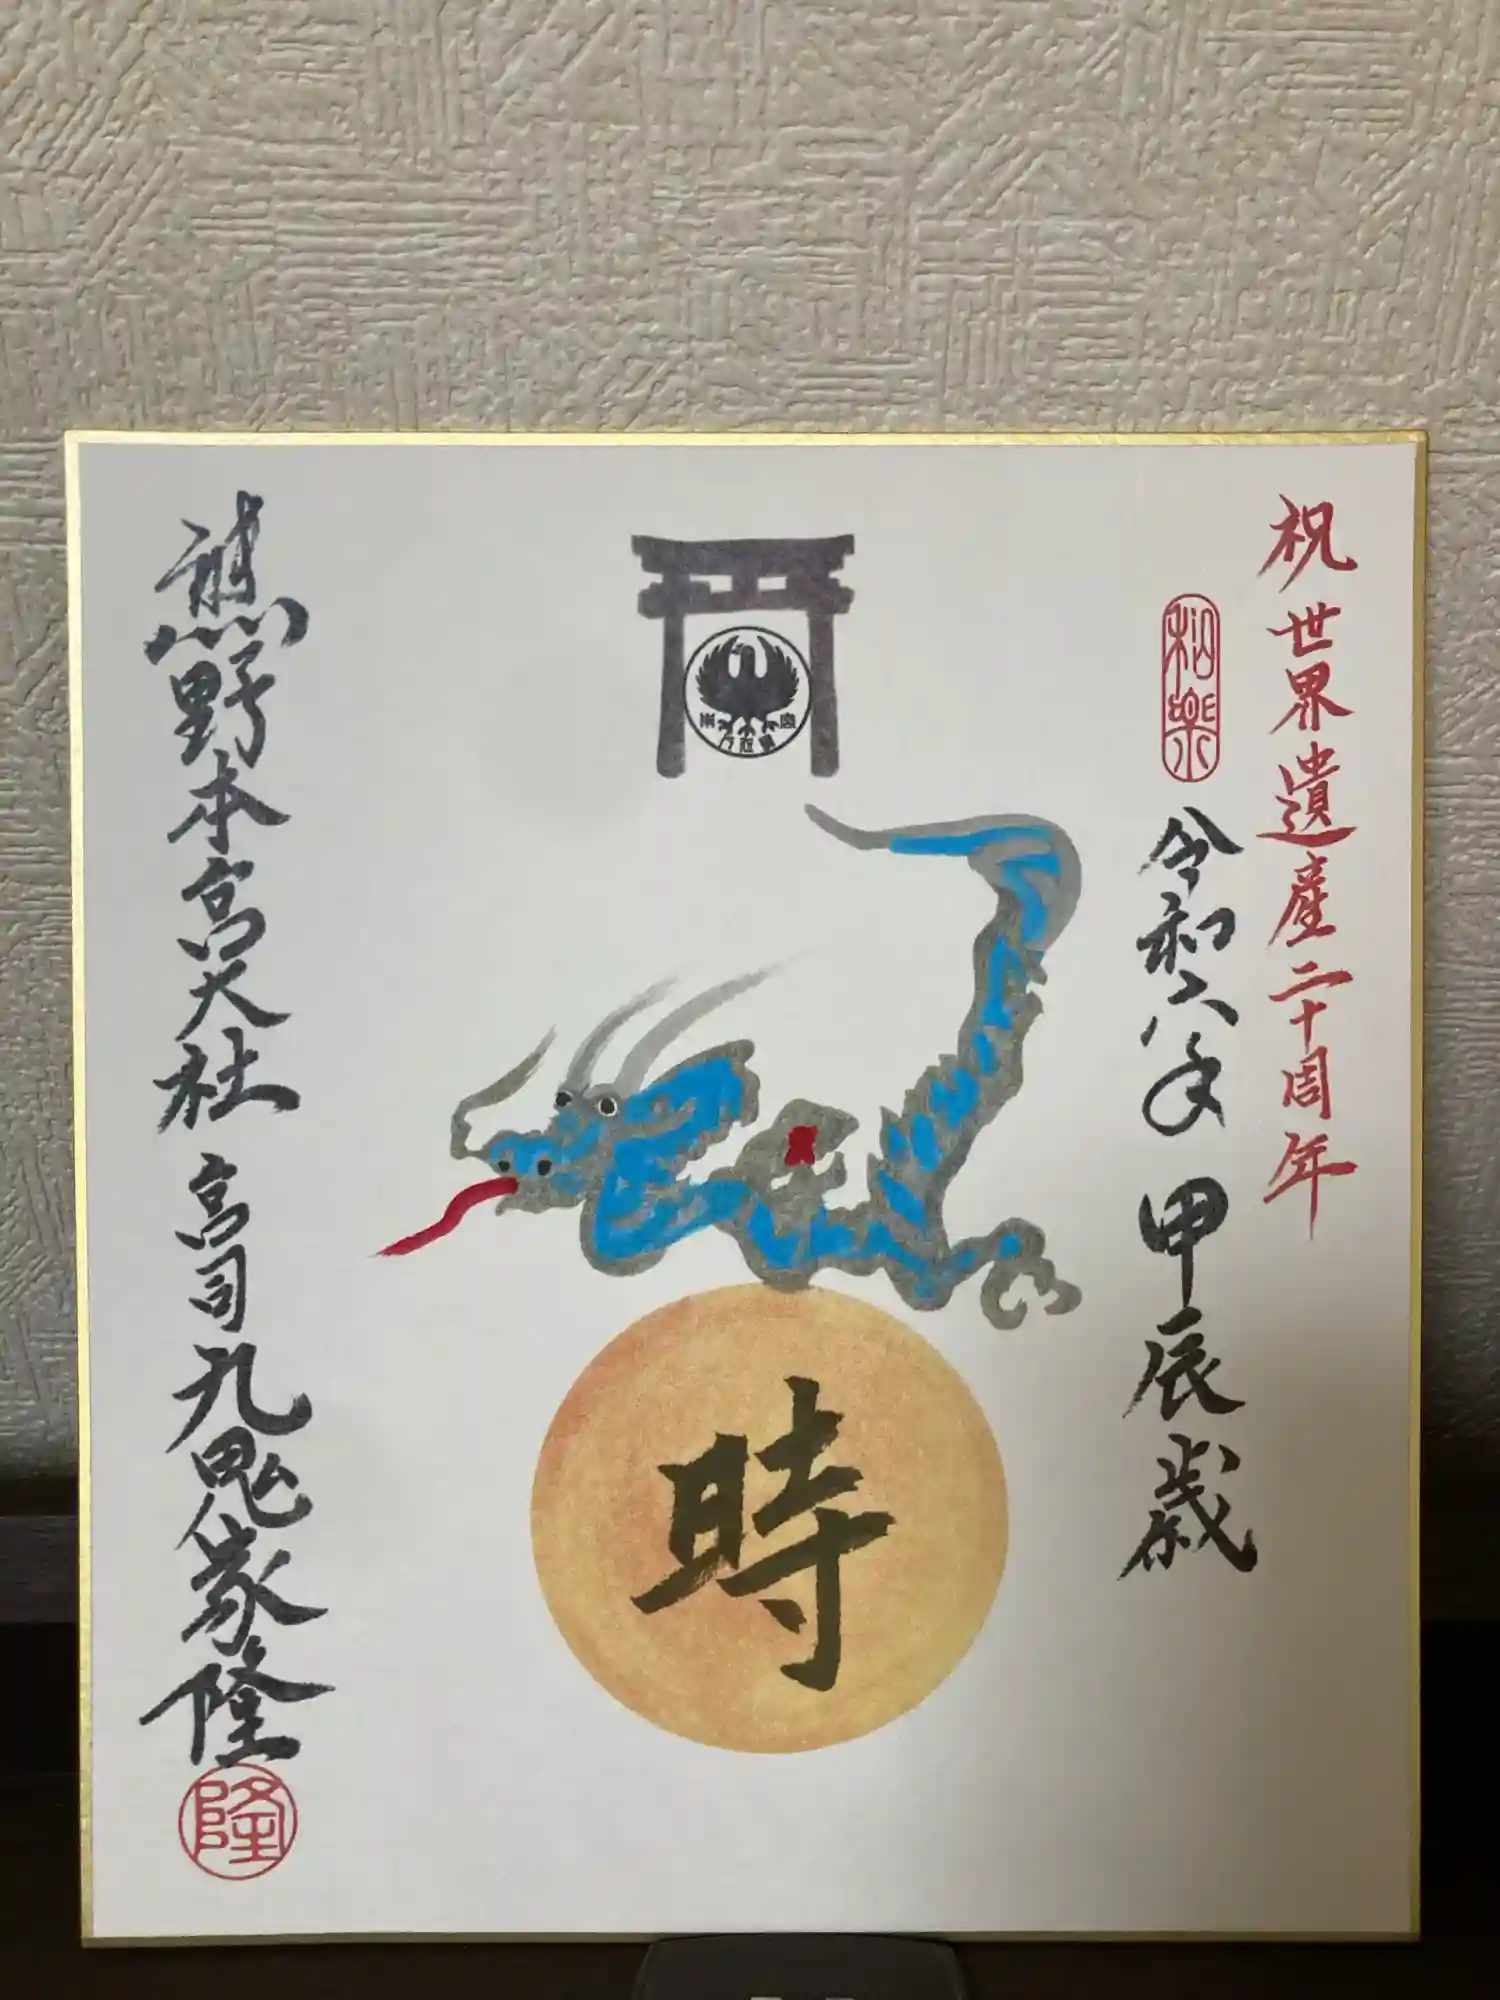 祝世界遺産二十周年
和楽
令和六年甲辰歳
時
熊野本宮大社宮司九鬼家隆
隆